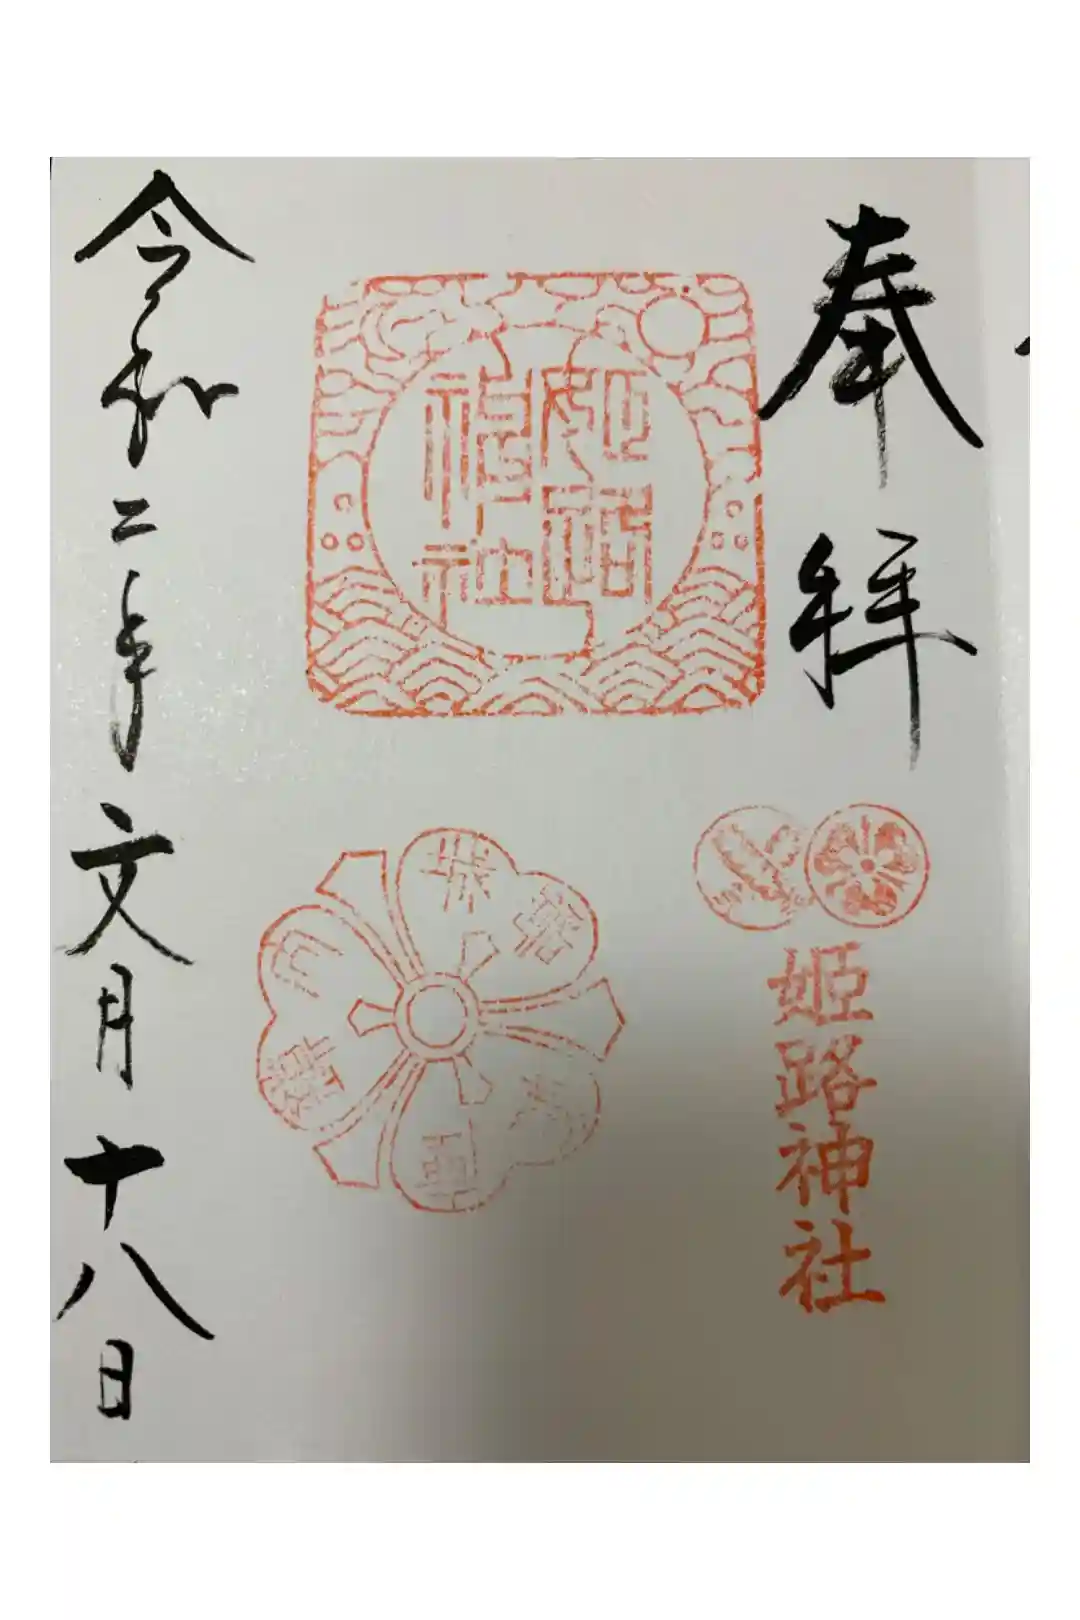 奉拝
姫路神社
姫路
神社
令和二年文月十八日